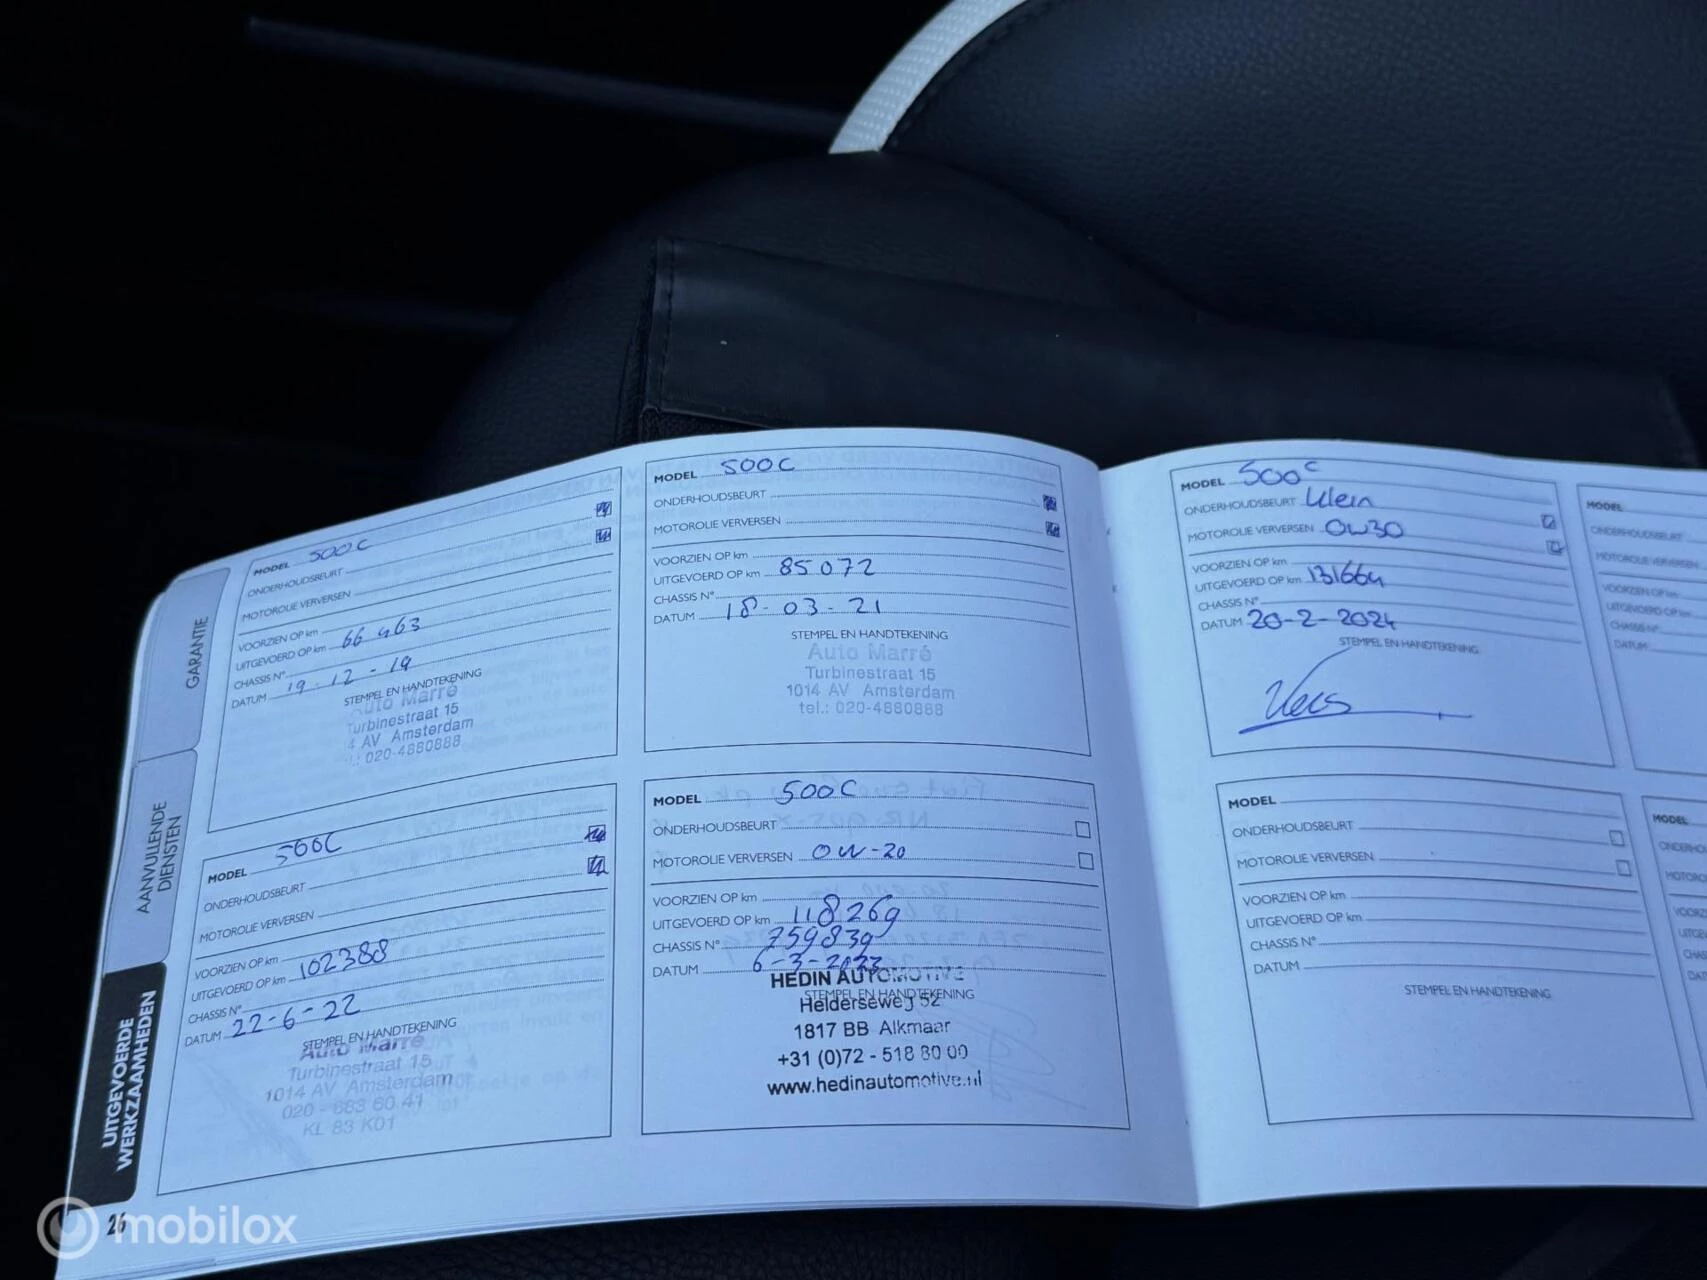 GARANTIE
AANVULLENDE
DIENSTEN
UITGEVOERDE
WERKZAAMHEDEN
26
MODEL 500C
ONDERHOUDSBEURT
MOTOROLIE VERVERSEN
VOORZIEN OP km
UITGEVOERD OP km 66 463
CHASSIS N°
DATUM 19-12-19
STEMPEL EN HANDTEKENING
Auto Marré
Turbinestraat 15
4 AV Amsterdam
.: 020-4880888
MODEL 500C
ONDERHOUDSBEURT
MOTOROLIE VERVERSEN
VOORZIEN OP km
UITGEVOERD OP km 102388
CHASSIS N°
DATUM 22-6-22
STEMPEL EN HANDTEKENING
Auto Marré
Turbinestraat 15
1014 AV Amsterdam
020 - 683 60 41
KL 83 K01
MODEL 500C
ONDERHOUDSBEURT
MOTOROLIE VERVERSEN
VOORZIEN OP km
UITGEVOERD OP km 85072
CHASSIS N°
DATUM 18-03-21
STEMPEL EN HANDTEKENING
Auto Marré
Turbinestraat 15
1014 AV Amsterdam
tel.: 020-4880888
MODEL 500C
ONDERHOUDSBEURT
MOTOROLIE VERVERSEN OW-20
VOORZIEN OP km
UITGEVOERD OP km 118269
CHASSIS N° 759839
DATUM 6-3-2023
HEDIN AUTOMOTIVE
STEMPEL EN HANDTEKENING
Helderseweg 52
1817 BB Alkmaar
+31 (0)72 - 518 80 00
www.hedinautomotive.nl
MODEL 500C
ONDERHOUDSBEURT Klein
MOTOROLIE VERVERSEN OW30
VOORZIEN OP km
UITGEVOERD OP km 131664
CHASSIS N°
DATUM 20-2-2024
STEMPEL EN HANDTEKENING
MODEL
ONDERHOUDSBEURT
MOTOROLIE VERVERSEN
VOORZIEN OP km
UITGEVOERD OP km
CHASSIS N°
DATUM
STEMPEL EN HANDTEKENING
MODEL
ONDERHOUDSBEURT
MOTOROLIE VERVERSEN
VOORZIEN OP km
UITGEVOERD OP km
CHASSIS N°
DATUM
MODEL
mobilox